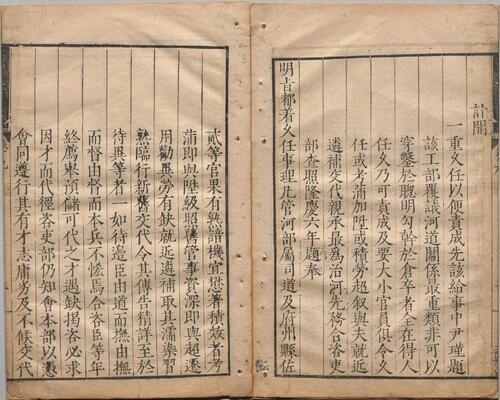 計開
一重久任以便責成先該給事中尹瑾題
該工部覆議河道關係最重類非可以
穿鑿於聰明勾幹於倉卒者全在得人
任久乃可責成及要大小官員俱令久
任或考滿加陞或積勞超叙與夫就近
遴補交代親承最為治河先務合咨吏
部查照隆慶六年題奉
明旨都着久任事理凡管河部屬司道及府州縣佐
貳等官果有熟諳機宜懋著積效者考
滿即與陞級照舊管事資深即與超遷
用勸異勞有缺就近遴補取其濡染習
熟臨行新舊交代令其傳告精詳至於
待異等者一如待邊臣由道而撫由撫
而督由督而本兵不恡焉合咨臣等年
終薦舉預儲可代之才遇缺揭咨必求
因才而代徑咨吏部仍知會本部以憑
會同遵行其有才志庸劣及不候交代